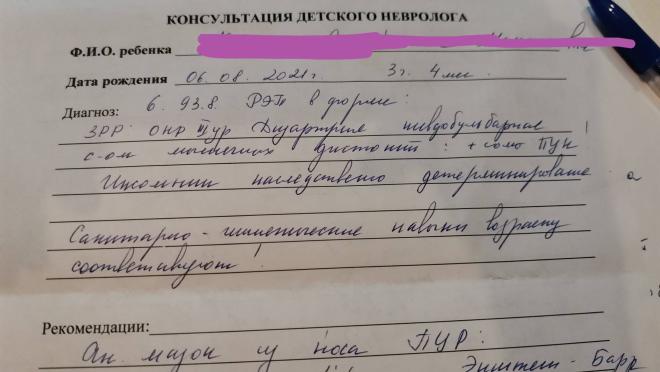 КОНСУЛЬТАЦИЯ ДЕТСКОГО НЕВРОЛОГА
Ф.И.О. ребенка
Дата рождения 06. 08. 2021г. 3г. 4 мес.
Диагноз: G. 93.8. РЭП в форме:
ЗРР: ОНР IIур Дизартрия псевдобульбарная !
с-ом мышечных дистоний :
Инсомнии наследственно детерминирована
Санитарно - гигиенические навыки возрасту
соответствуют !
Рекомендации:
Ан. мазок из носа ПЦР :
Эпштейн - Барр